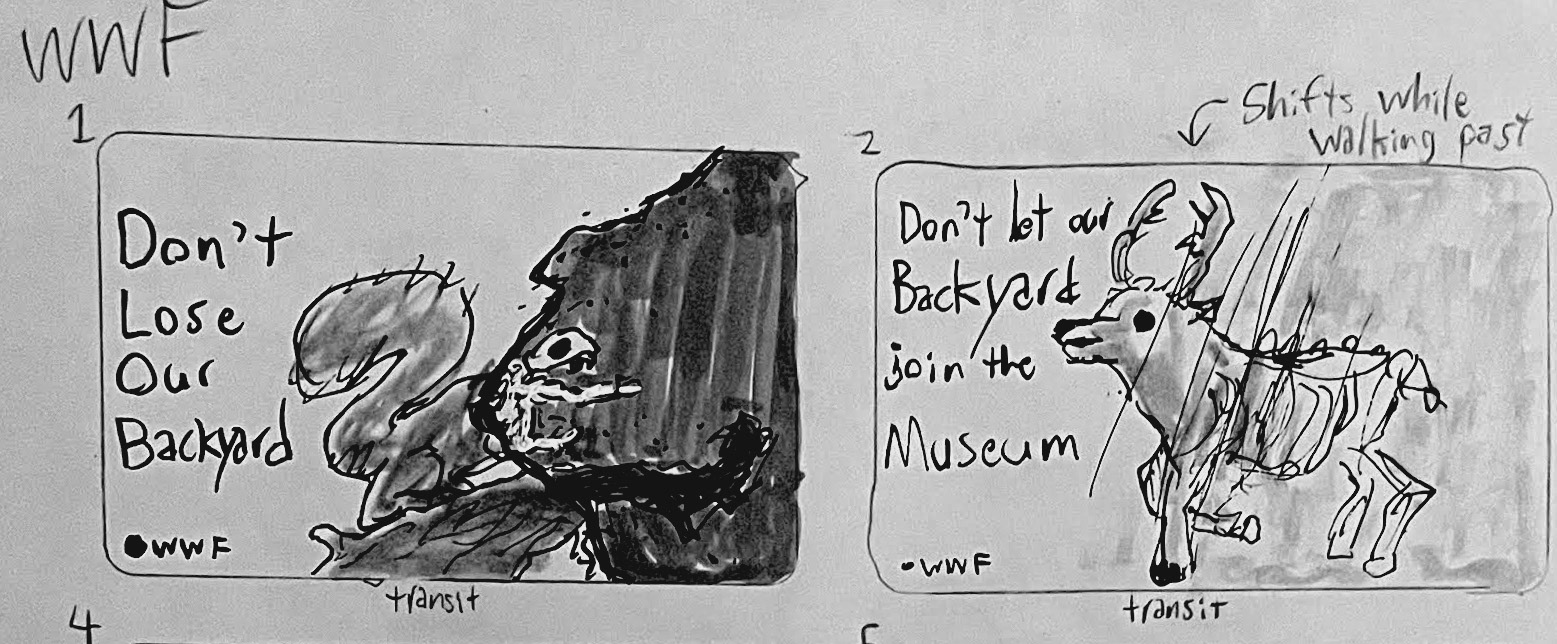 WWF
1
Don't
Lose
Our
Backyard
WWF
transit
2
Shifts while
walking past
Don't let our
Backyard
join the
Museum
WWF
transit
4